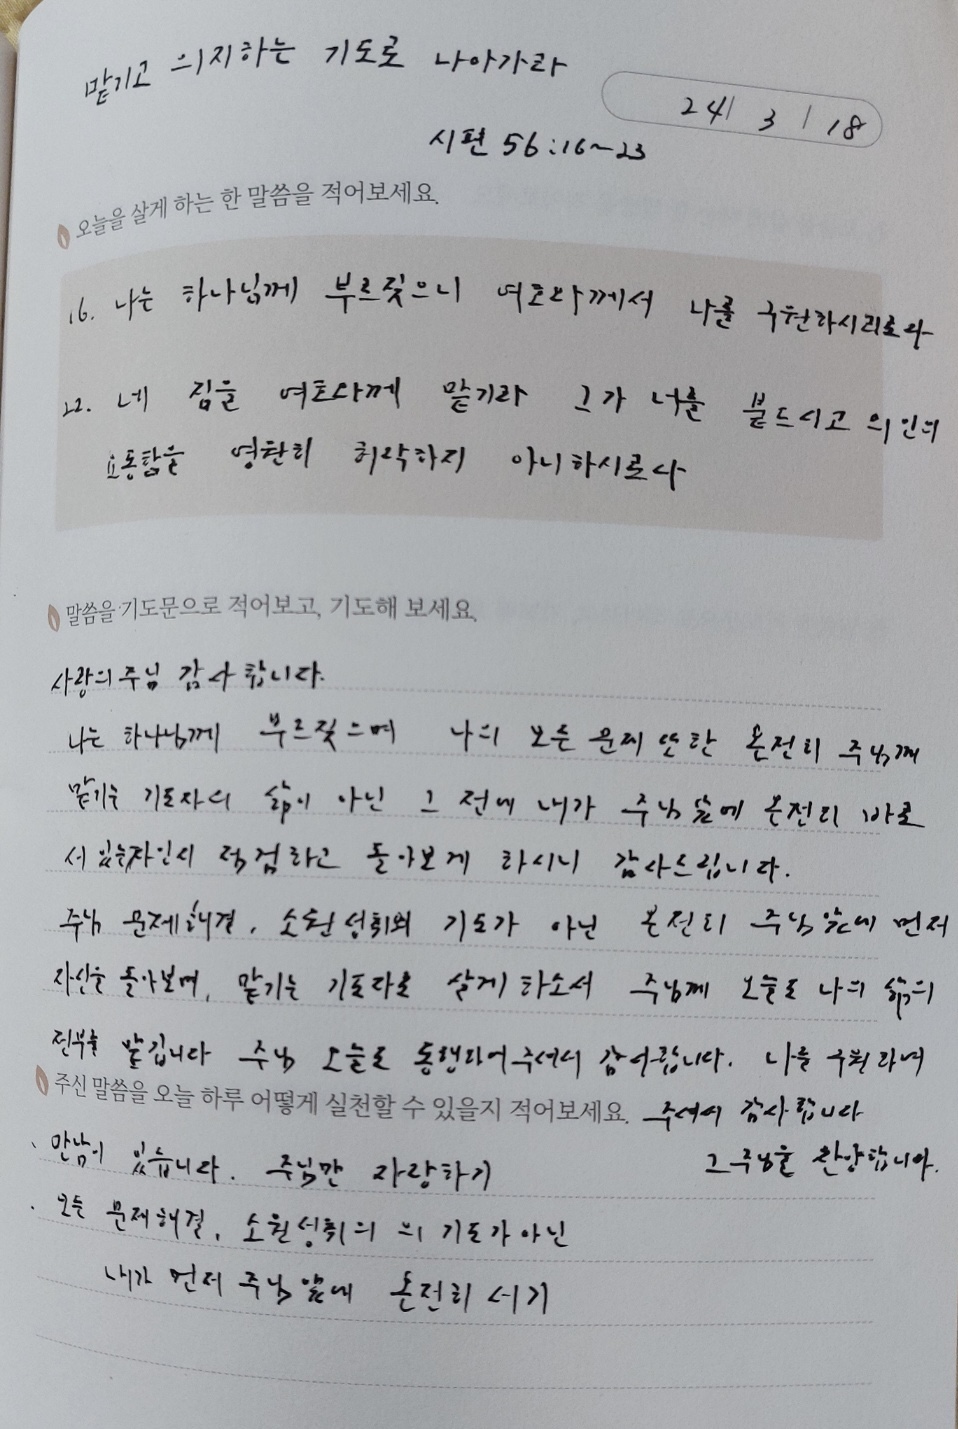 맡기고 의지하는 기도로 나아가라
24/ 3 / 18
시편 56:16~23
오늘을 살게 하는 한 말씀을 적어보세요.
16. 나는 하나님께 부르짖으니 여호와께서 나를 구원하시리로다
22. 네 짐을 여호와께 맡기라 그가 너를 붙드시고 의인의
요동함을 영원히 허락하지 아니하시로다
말씀을 기도문으로 적어보고, 기도해 보세요.
사랑의 주님 감사합니다.
나는 하나님께 부르짖으며 나의 모든 문제 또한 온전히 주님께
맡기는 기도자의 삶이 아닌 그 전에 내가 주님 앞에 온전히 바로
서 있는자인지 점검하고 돌아보게 하시니 감사드립니다.
주님 문제해결, 소원성취의 기도가 아닌 온전히 주님앞에 먼저
자신을 돌아보며, 맡기는 기도자로 살게 하소서 주님께 오늘도 나의 삶의
전부를 맡깁니다 주님 오늘도 동행하여주셔서 감사합니다. 나를 구원하여
주신 말씀을 오늘 하루 어떻게 실천할 수 있을지 적어보세요. 주셔서 감사합니다
그 주님을 찬양합니다.
· 만남이 있습니다. 주님만 자랑하기
· 모든 문제해결, 소원성취의 의 기도가아닌
내가 먼저 주님 앞에 온전히 서기